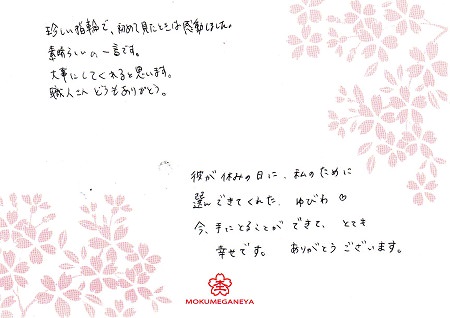 珍しい指輪で、初めて見たときは感動しました。
素晴らしいの一言です。
大事にしてくれると思います。
職人さん どうもありがとう。
彼が休みの日に、私のために
選んできてくれた、ゆびわ♡
今、手にとることができて、とても
幸せです。 ありがとうございます。
MOKUMEGANEYA